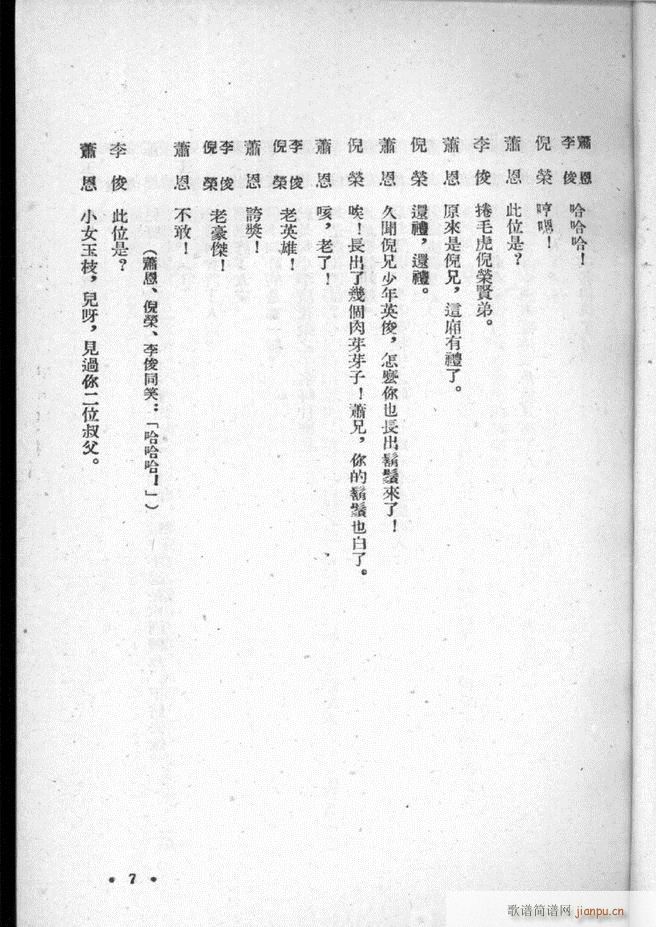 蕭恩
李俊　哈哈哈！
倪榮　哼嗯！
蕭恩　此位是？
李俊　捲毛虎倪榮賢弟。
蕭恩　原來是倪兄，這廂有禮了。
倪榮　還禮，還禮。
蕭恩　久聞倪兄少年英俊，怎麼你也長出鬍鬚來了！
倪榮　唉！長出了幾個肉芽芽子！蕭兄，你的鬍鬚也白了。
蕭恩　咳，老了！
李俊
倪榮　老英雄！
蕭恩　誇獎！
李俊
倪榮　老豪傑！
蕭恩　不敢！
（蕭恩、倪榮、李俊同笑：「哈哈哈！」）
李俊　此位是？
蕭恩　小女玉枝，兒呀，見過你二位叔父。
• 7 •
歌谱简谱网 jianpu.cn